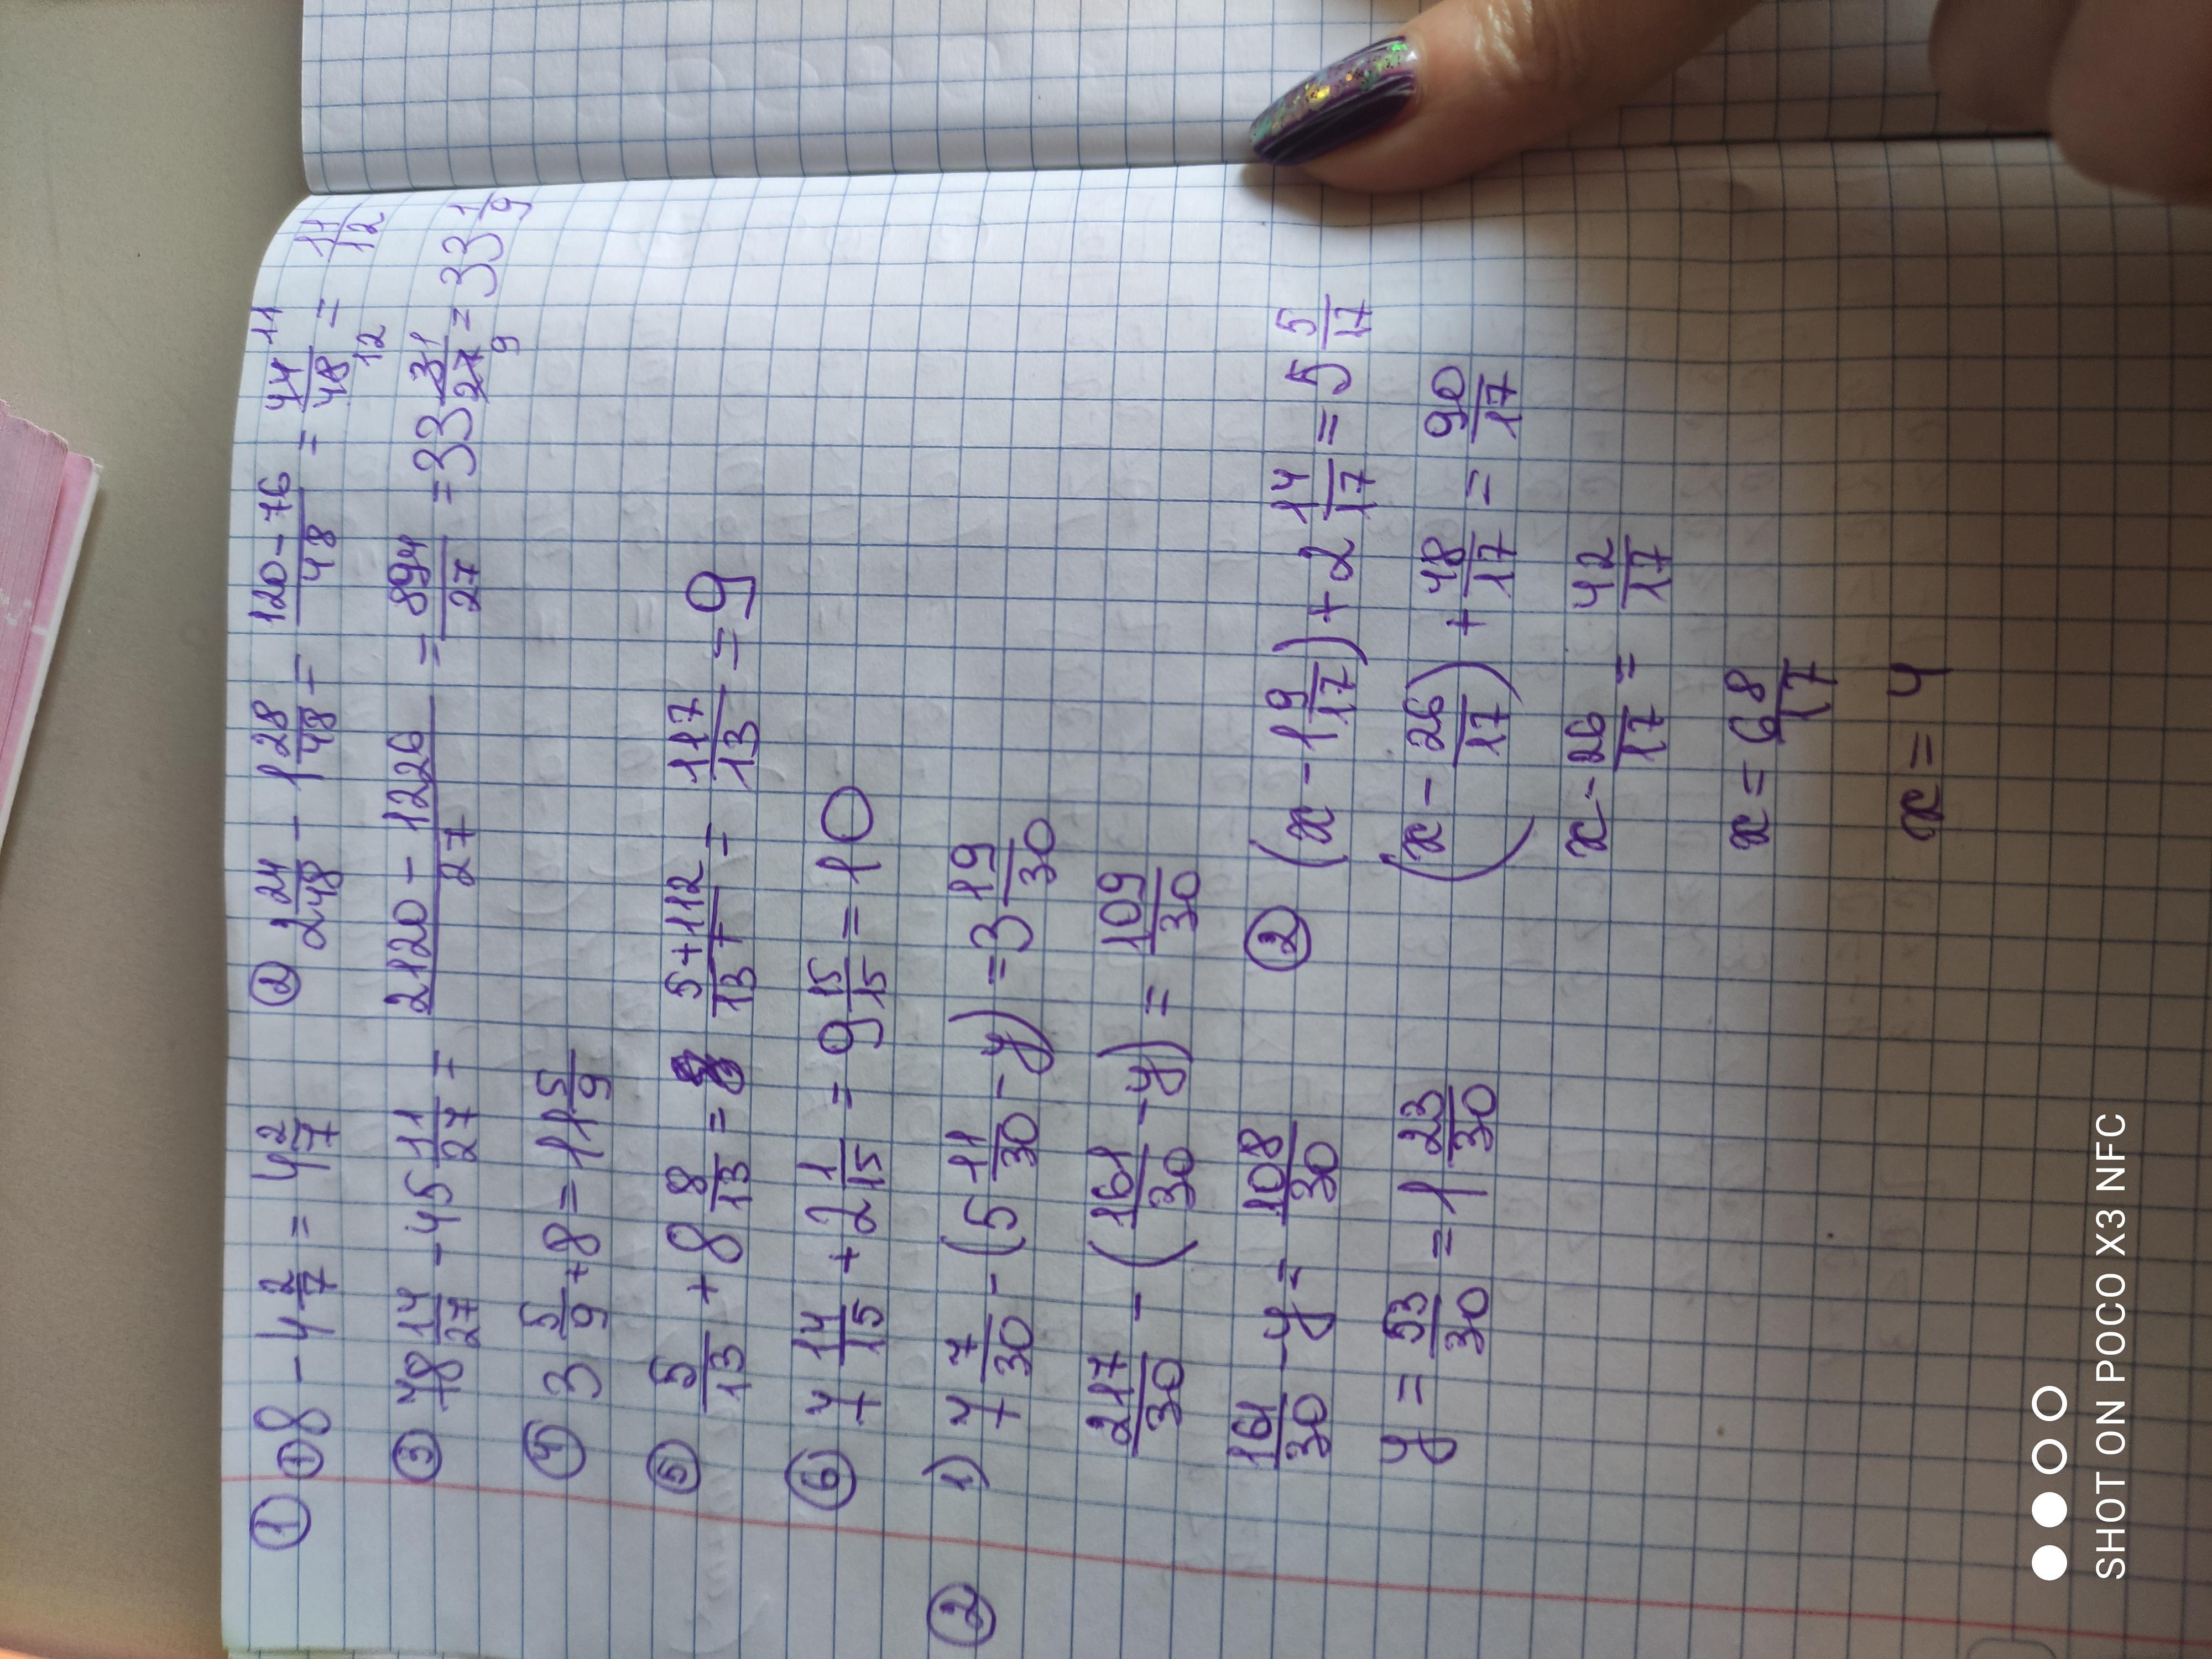 ① ① 8 - 4 2/7 = 4 2/7 ② 2 24/48 - 1 28/48 = 120-76/48 = 44/48 11/12 = 11/12
③ 78 14/27 - 45 11/27 = 2120-1226/27 = 894/27 = 33 31/27 9 = 33 1/9
④ 3 5/9 + 8 = 11 5/9
⑤ 5/13 + 8 8/13 = 5+112/13 = 117/13 = 9
⑥ 7 14/15 + 2 1/15 = 9 15/15 = 10
② 1) 7 7/30 - (5 11/30 - y) = 3 19/30
217/30 - (161/30 - y) = 109/30
161/30 - y = 108/30
y = 53/30 = 1 23/30
② (x - 1 9/17) + 2 14/17 = 5 5/17
(x - 26/17) + 48/17 = 90/17
x - 26/17 = 42/17
x = 68/17
x = 4
SHOT ON POCO X3 NFC